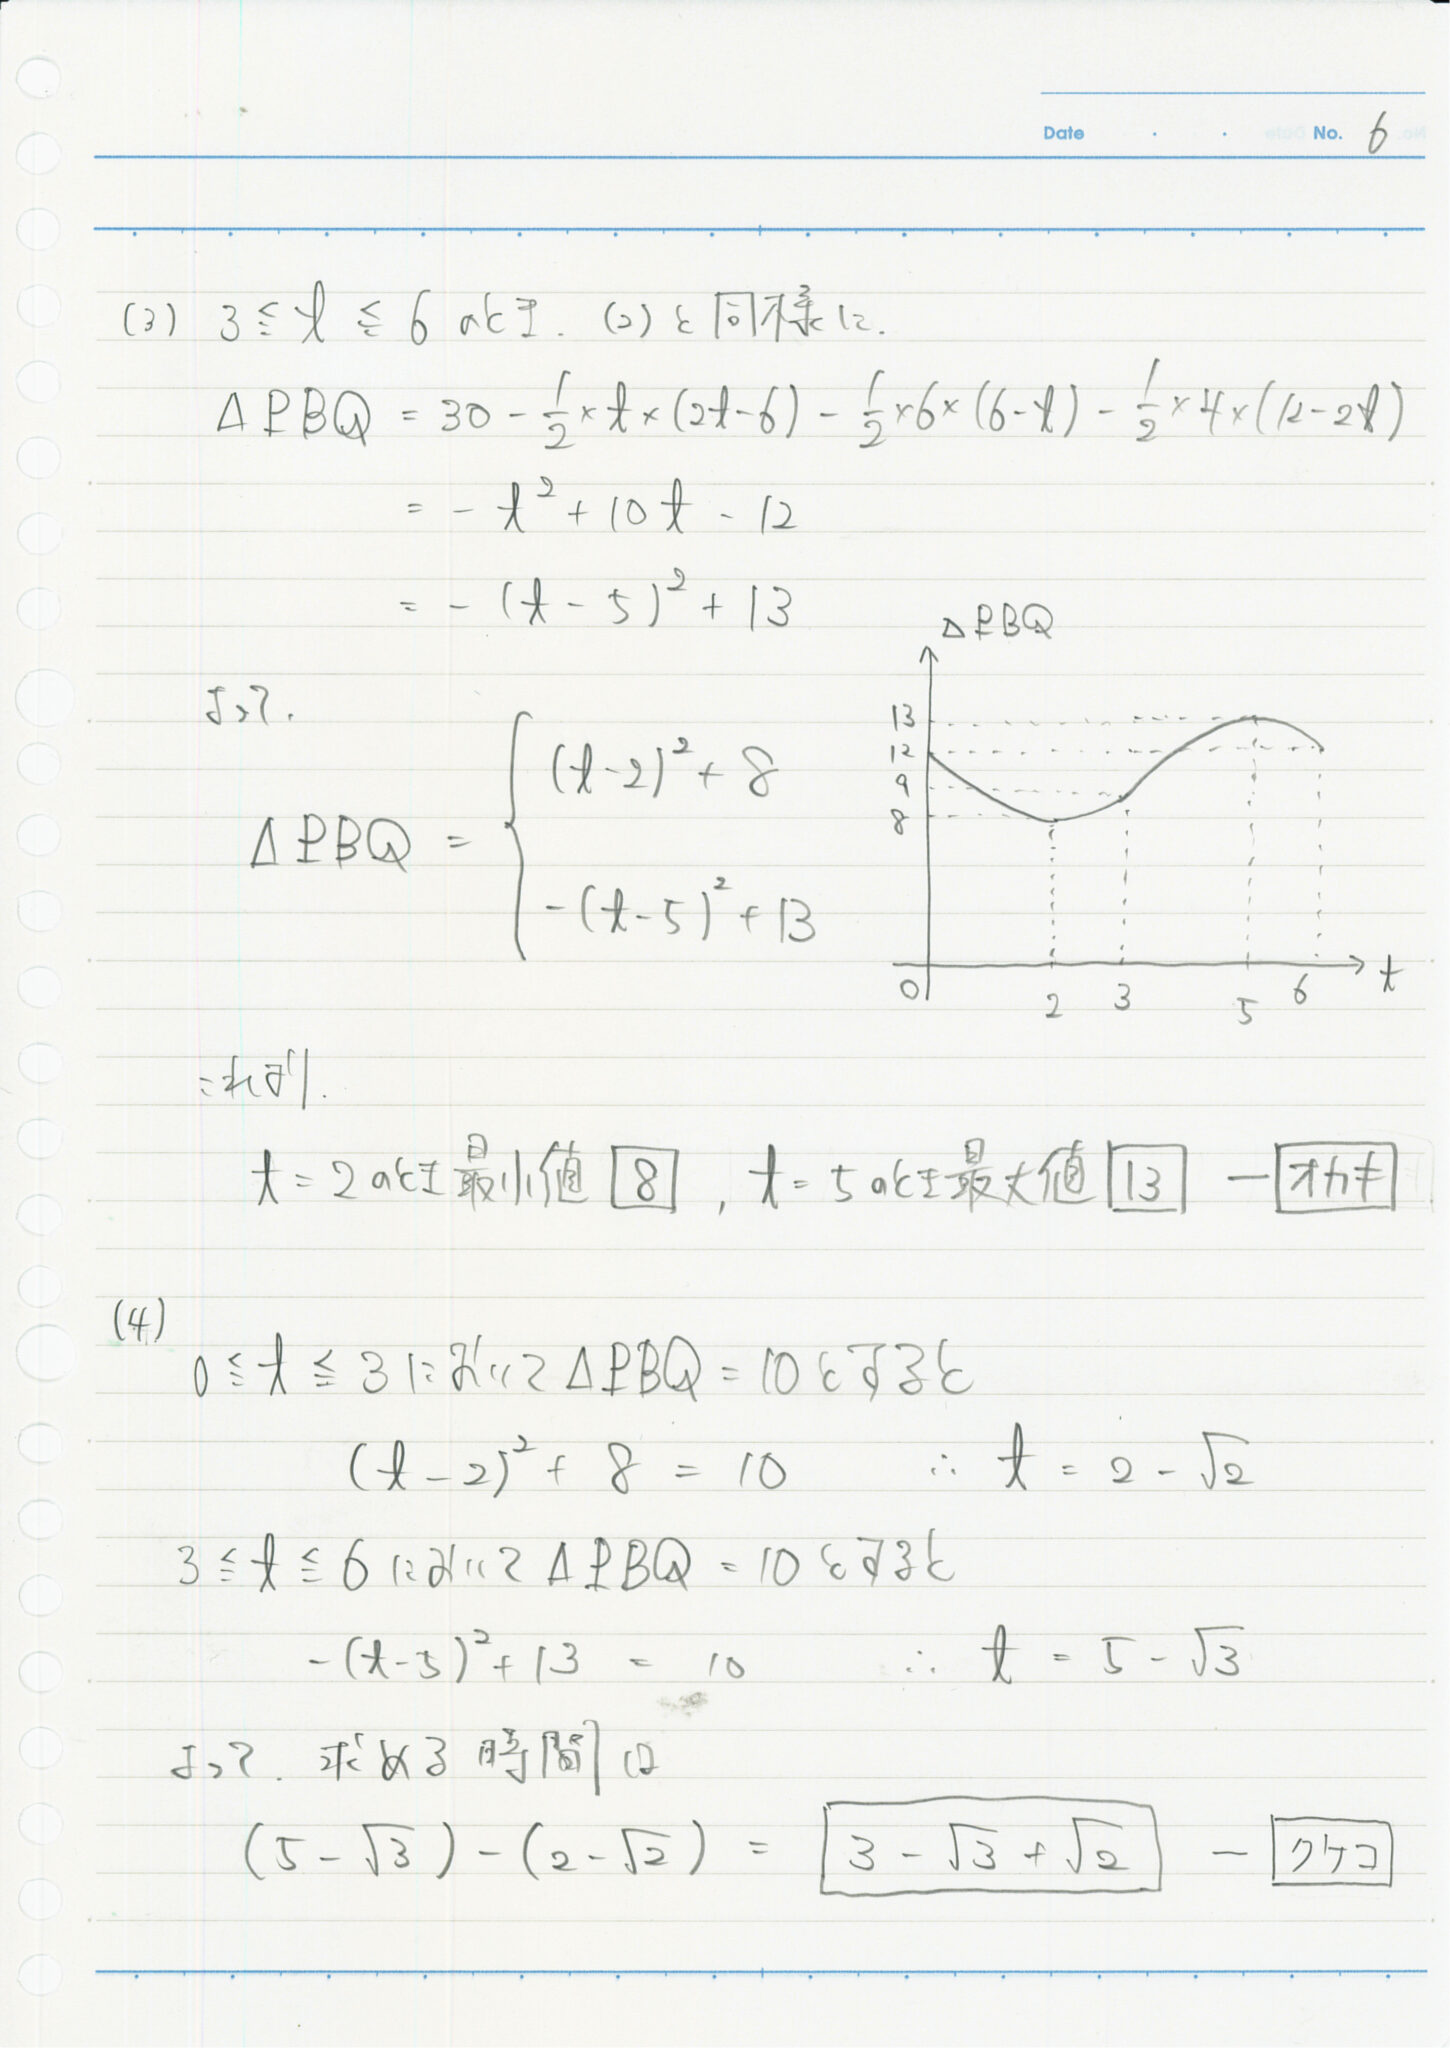 Date . . No. 6
(3) 3 ≦ t ≦ 6 のとき. (2)と同様に.
△PBQ = 30 - 1/2 × t × (2t-6) - 1/2 × 6 × (6-t) - 1/2 × 4 × (12-2t)
= - t² + 10t - 12
= - (t - 5)² + 13
よって.
△PBQ = { (t-2)² + 8
-(t-5)² + 13
△PBQ
13
12
9
8
0 2 3 5 6 t
これより.
t = 2のとき最小値 8 , t = 5のとき最大値 13 — オカキ
(4)
0 ≦ t ≦ 3 において △PBQ = 10とすると
(t - 2)² + 8 = 10 ∴ t = 2 - √2
3 ≦ t ≦ 6 において △PBQ = 10とすると
-(t-5)² + 13 = 10 ∴ t = 5 - √3
よって. 求める時間は
(5 - √3) - (2 - √2) = 3 - √3 + √2 — クケコ